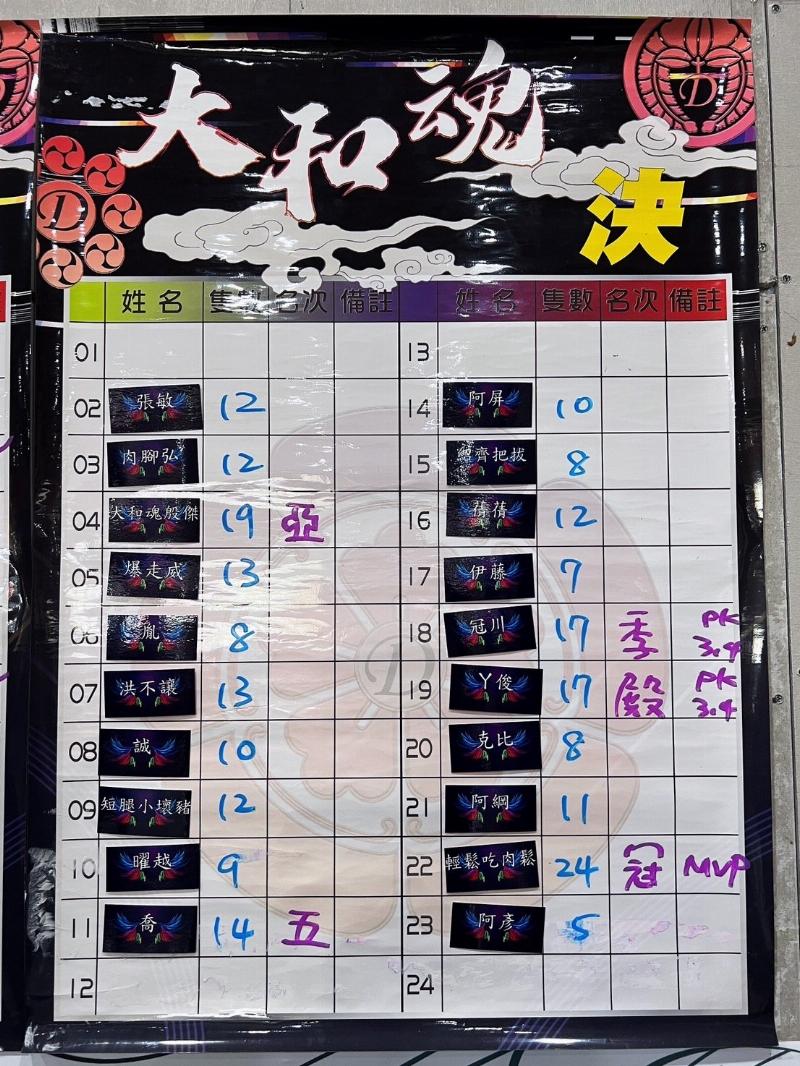 大和魂
決
姓名 隻數 名次 備註 姓名 隻數 名次 備註
01 13
02 張敏 12 14 阿屏 10
03 肉腳弘 12 15 經濟把拔 8
04 大和魂般傑 19 亞 16 蒨蒨 12
05 爆走威 13 17 伊藤 7
06 胤 8 18 冠川 17 季 PK 3.4
07 洪不讓 13 19 丫俊 17 殿 PK 3.4
08 誠 10 20 克比 8
09 短腿小壞豬 12 21 阿綱 11
10 曜越 9 22 輕鬆吃肉鬆 24 冠 MVP
11 喬 14 五 23 阿彥 5
12 24